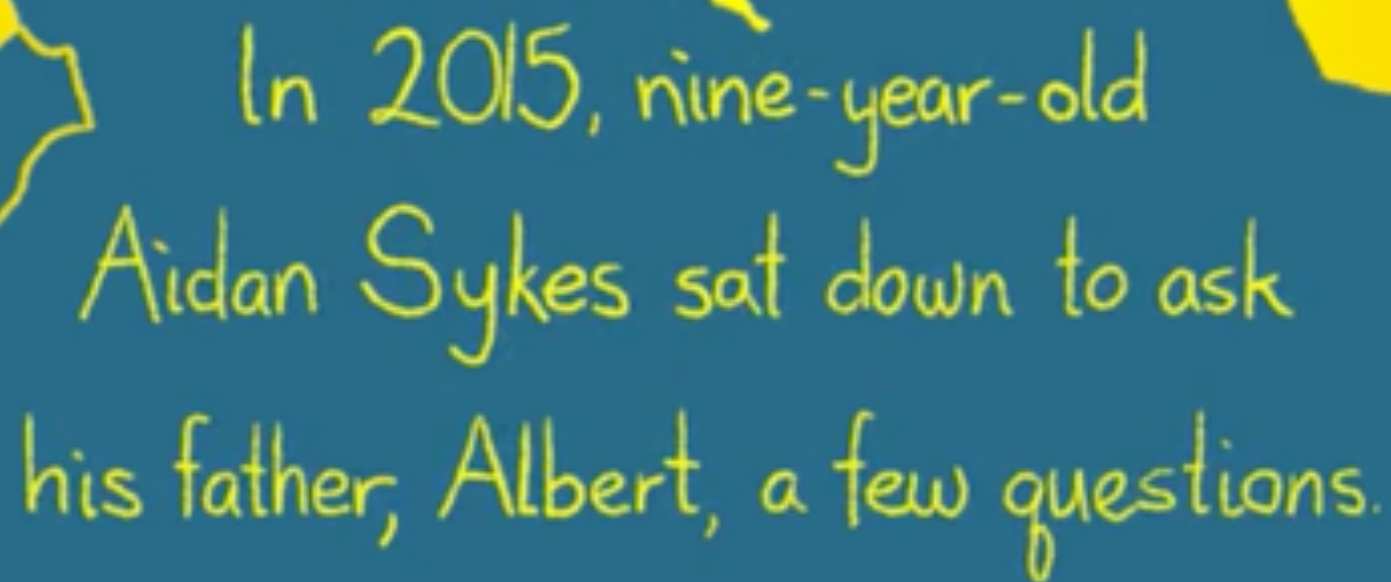 In 2015, nine-year-old
Aidan Sykes sat down to ask
his father, Albert, a few questions.